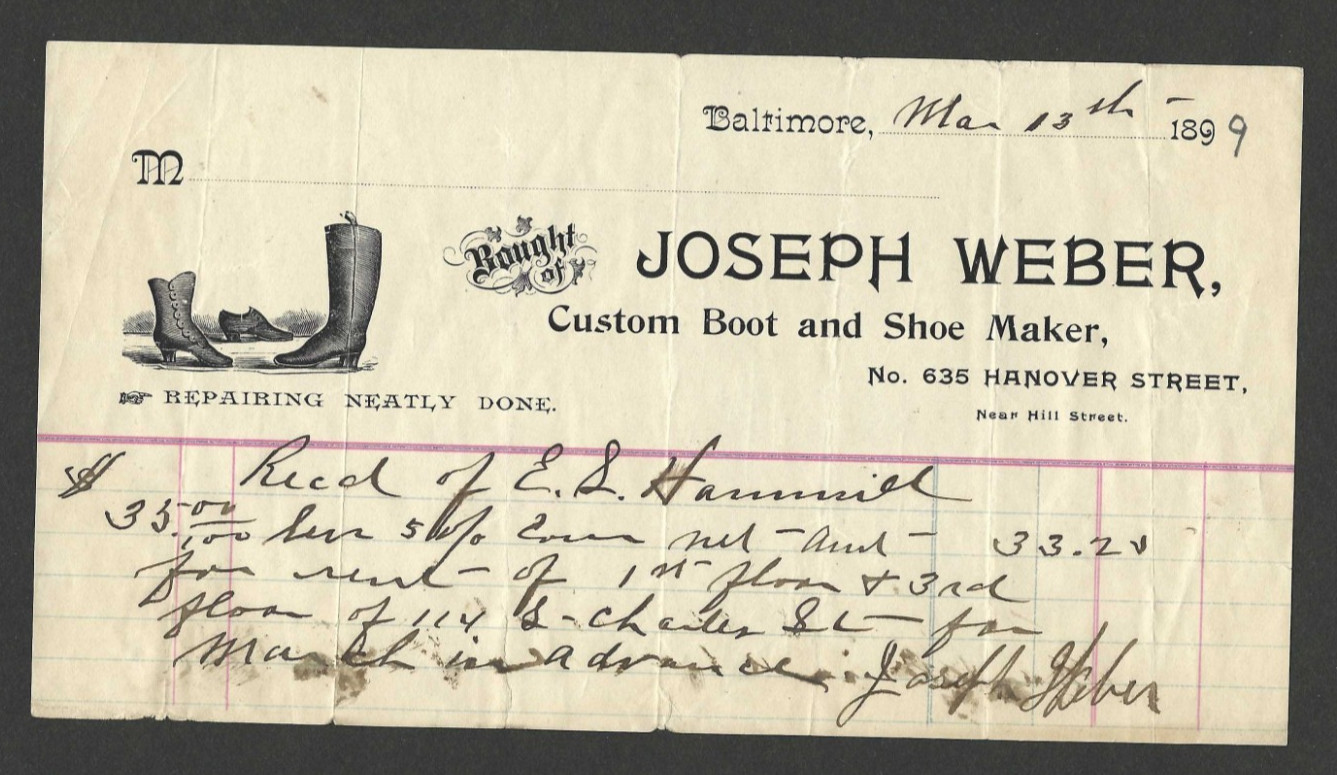 Baltimore, Mar 13th 1899
M
Bought of JOSEPH WEBER,
Custom Boot and Shoe Maker,
No. 635 HANOVER STREET,
Near Hill Street.
REPAIRING NEATLY DONE.
$ Recd of E. S. Hammill
35.00/100 less 5 % Com net amt 33.25
for rent of 1st floor & 3rd
floor of 114 S. Charles St for
March in advance. Joseph Weber